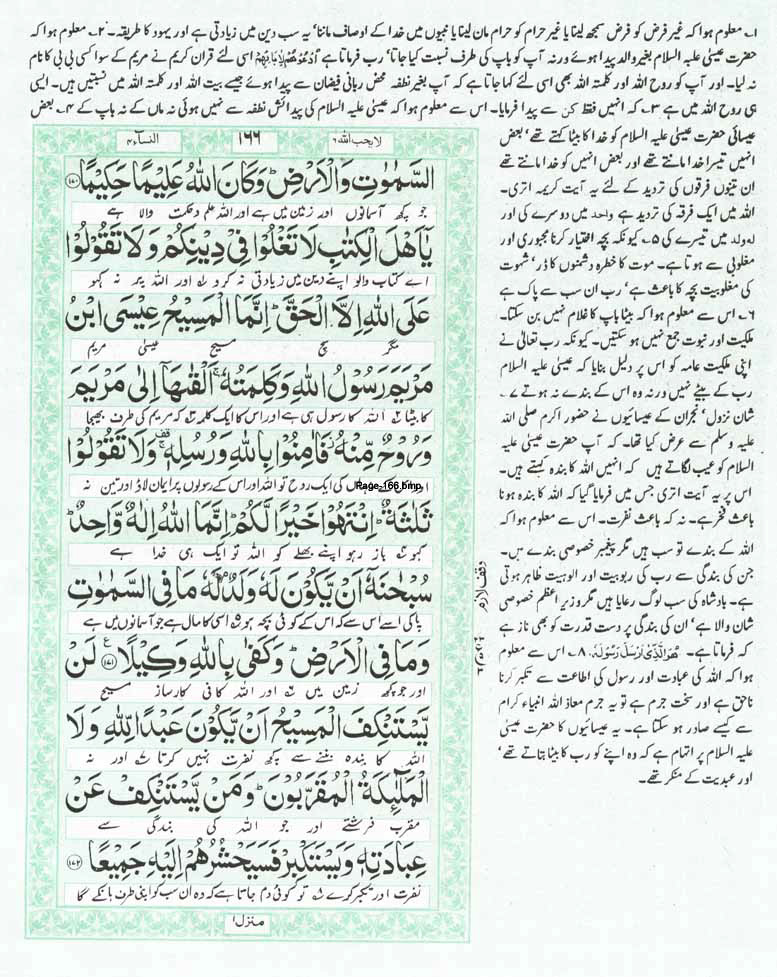 ۱۔ معلوم ہوا کہ غیر فرض کو فرض سمجھ لینا یا غیر حرام کو حرام مان لینا یا نبیوں میں خدا کے اوصاف ماننا' یہ سب دین میں زیادتی ہے اور یہود کا طریقہ۔ ۲۔ معلوم ہوا کہ
حضرت عیسیٰ علیہ السلام بغیر والد پیدا ہوئے ورنہ آپ کو باپ کی طرف نسبت کیا جاتا' رب فرماتا ہے اُدْعُوْهُمْ لِاٰبَآئِهِمْ اسی لئے قرآن کریم نے مریم کے سوا کسی بی بی کا نام
نہ لیا۔ اور آپ کو روح اللہ اور کلمتہ اللہ بھی اسی لئے کہا جاتا ہے کہ آپ بغیر نطفہ محض ربانی فیضان سے پیدا ہوئے جیسے بیت اللہ اور کلمتہ اللہ میں نسبتیں ہیں۔ ایسی
ہی روح اللہ میں ہے ۳۔ کہ انہیں فقط کن سے پیدا فرمایا۔ اس سے معلوم ہوا کہ عیسیٰ علیہ السلام کی پیدائش نطفہ سے نہیں ہوئی نہ ماں کے نہ باپ کے ۴۔ بعض
عیسائی حضرت عیسیٰ علیہ السلام کو خدا کا بیٹا کہتے تھے' بعض
انہیں تیسرا خدا مانتے تھے اور بعض انہیں کو خدا مانتے تھے
ان تینوں فرقوں کی تردید کے لئے یہ آیت کریمہ اتری۔
اللہ میں ایک فرقہ کی تردید ہے واحد میں دوسرے کی اور
لہ ولد میں تیسرے کی ۵۔ کیونکہ بچہ اختیار کرنا مجبوری اور
مغلوبی سے ہوتا ہے۔ موت کا خطرہ دشمنوں کا ڈر' شہوت
کی مغلوبیت بچہ کا باعث ہے' رب ان سب سے پاک ہے
۶۔ اس سے معلوم ہوا کہ بیٹا باپ کا غلام نہیں بن سکتا۔
ملکیت اور نبوت جمع نہیں ہو سکتیں۔ کیونکہ رب تعالیٰ نے
اپنی ملکیت عامہ کو اس پر دلیل بنایا کہ عیسیٰ علیہ السلام
رب کے بیٹے نہیں ورنہ وہ اس کے بندے نہ ہوتے ۷۔
شان نزول' نجران کے عیسائیوں نے حضور اکرم صلی اللہ
علیہ وسلم سے عرض کیا تھا۔ کہ آپ حضرت عیسیٰ علیہ
السلام کو عیب لگاتے ہیں کہ انہیں اللہ کا بندہ کہتے ہیں۔
اس پر یہ آیت اتری جس میں فرمایا گیا کہ اللہ کا بندہ ہونا
باعث فخر ہے۔ نہ کہ باعث نفرت۔ اس سے معلوم ہوا کہ
اللہ کے بندے تو سب ہیں مگر پیغمبر خصوصی بندے ہیں۔
جن کی بندگی سے رب کی ربوبیت اور الوہیت ظاہر ہوتی
ہے۔ بادشاہ کی سب لوگ رعایا ہیں مگر وزیر اعظم خصوصی
شان والا ہے' ان کی بندگی پر دست قدرت کو بھی ناز ہے
کہ فرماتا ہے۔ هُوَ الَّذِیْ اَرْسَلَ رَسُوْلَهٗ، ۸۔ اس سے معلوم
ہوا کہ اللہ کی عبادت اور رسول کی اطاعت سے تکبر کرنا
ناحق ہے اور سخت جرم ہے تو یہ جرم معاذ اللہ انبیاء کرام
سے کیسے صادر ہو سکتا ہے۔ یہ عیسائیوں کا حضرت عیسیٰ
علیہ السلام پر اتہام ہے کہ وہ اپنے کو رب کا بیٹا بتاتے تھے'
اور عبدیت کے منکر تھے۔
وقف لازم
النساء ۴
۱۶۶
لا یحب اللہ ۶
السَّمٰوٰتِ وَالْاَرْضِ ؕ وَكَانَ اللّٰهُ عَلِیْمًا حَكِیْمًا ﴿۱۷۰﴾
جو کچھ آسمانوں اور زمین میں ہے اور اللہ علم و حکمت والا ہے
یٰۤاَهْلَ الْكِتٰبِ لَا تَغْلُوْا فِیْ دِیْنِكُمْ وَ لَا تَقُوْلُوْا
اے کتاب والو اپنے دین میں زیادتی نہ کرو ۱ اور اللہ پر نہ کہو
عَلَى اللّٰهِ اِلَّا الْحَقَّ ؕ اِنَّمَا الْمَسِیْحُ عِیْسَى ابْنُ
مگر سچ مسیح عیسیٰ مریم
مَرْیَمَ رَسُوْلُ اللّٰهِ وَ كَلِمَتُهٗ ۚ اَلْقٰىهَاۤ اِلٰى مَرْیَمَ
کا بیٹا ۲ اللہ کا رسول ہی ہے اور اس کا ایک کلمہ کہ مریم کی طرف بھیجا
وَ رُوْحٌ مِّنْهُ ؗ فَاٰمِنُوْا بِاللّٰهِ وَ رُسُلِهٖ ۚ۫ وَ لَا تَقُوْلُوْا
کی ایک روح تو اللہ اور اس کے رسولوں پر ایمان لاؤ اور تین نہ
Page-166.bmp
ثَلٰثَةٌ ؕ اِنْتَهُوْا خَیْرًا لَّكُمْ ؕ اِنَّمَا اللّٰهُ اِلٰهٌ وَّاحِدٌ ؕ
کہو باز رہو اپنے بھلے کو اللہ تو ایک ہی خدا ہے
سُبْحٰنَهٗۤ اَنْ یَّكُوْنَ لَهٗ وَلَدٌ ۘ لَهٗ مَا فِی السَّمٰوٰتِ
پاکی اسے اس سے کہ اس کے کوئی بچہ ہو ۵ اسی کا مال ہے جو آسمانوں میں ہے
وَ مَا فِی الْاَرْضِ ؕ وَ كَفٰى بِاللّٰهِ وَكِیْلًا ﴿۱۷۱﴾ لَنْ
اور جو کچھ زمین میں ۶ اور اللہ کافی کارساز مسیح
یَّسْتَنْكِفَ الْمَسِیْحُ اَنْ یَّكُوْنَ عَبْدًا لِّلّٰهِ وَ لَا
اللہ کا بندہ بننے سے کچھ نفرت نہیں کرتا ۷ اور نہ
الْمَلٰٓئِكَةُ الْمُقَرَّبُوْنَ ؕ وَ مَنْ یَّسْتَنْكِفْ عَنْ
مقرب فرشتے اور جو اللہ کی بندگی سے
عِبَادَتِهٖ وَ یَسْتَكْبِرْ فَسَیَحْشُرُهُمْ اِلَیْهِ جَمِیْعًا ﴿۱۷۲﴾
نفرت اور تکبر کرے ۸ تو کوئی دم جاتا ہے کہ وہ ان سب کو اپنی طرف ہانکے گا
منزل ۱